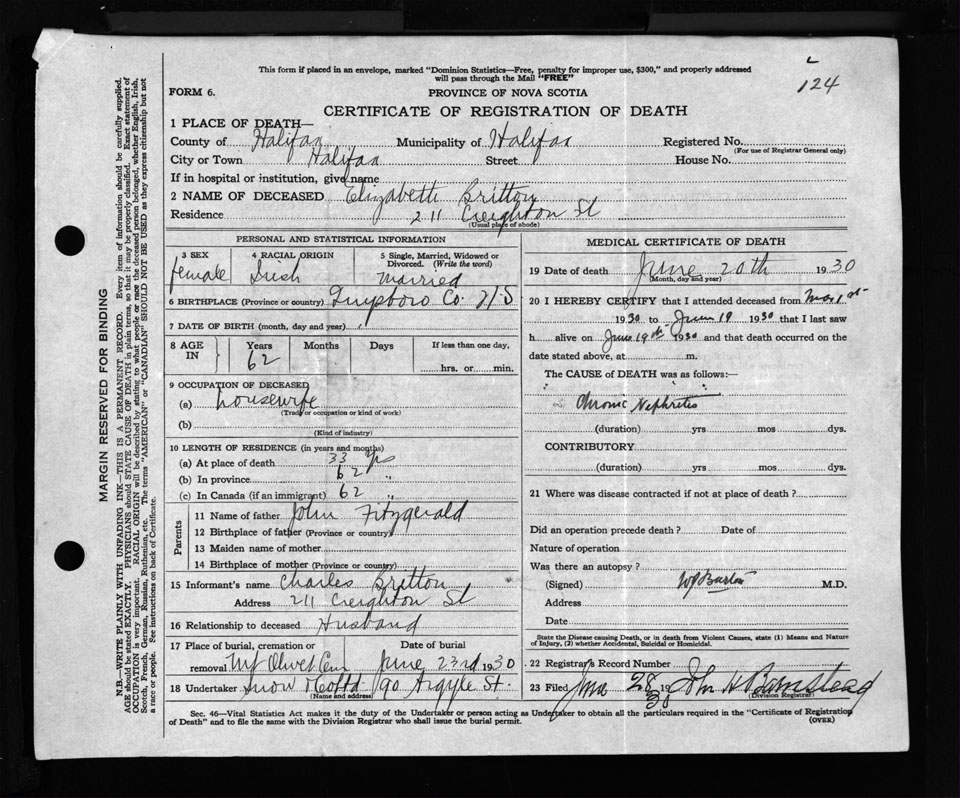 124
This form if placed in an envelope, marked "Dominion Statistics—Free, penalty for improper use, $300," and properly addressed
will pass through the Mail "FREE"
FORM 6.
PROVINCE OF NOVA SCOTIA
CERTIFICATE OF REGISTRATION OF DEATH
1 PLACE OF DEATH—
County of Halifax Municipality of Halifax Registered No.
(For use of Registrar General only)
City or Town Halifax Street House No.
If in hospital or institution, give name
2 NAME OF DECEASED Elizabeth Britton
Residence 211 Creighton St
(Usual place of abode)
PERSONAL AND STATISTICAL INFORMATION
3 SEX female
4 RACIAL ORIGIN Irish
5 Single, Married, Widowed or Divorced. (Write the word) Married
6 BIRTHPLACE (Province or country) Guysboro Co. N.S
7 DATE OF BIRTH (month, day and year)
8 AGE IN Years Months Days If less than one day,
62 hrs. or min.
9 OCCUPATION OF DECEASED
(a) housewife
(Trade, or occupation or kind of work)
(b)
(Kind of industry)
10 LENGTH OF RESIDENCE (in years and months)
(a) At place of death 33 yrs
(b) In province 62 "
(c) In Canada (if an immigrant) 62 "
Parents
11 Name of father John Fitzgerald
12 Birthplace of father (Province or country)
13 Maiden name of mother
14 Birthplace of mother (Province or country)
15 Informant's name Charles Britton
Address 211 Creighton St
16 Relationship to deceased Husband
17 Place of burial, cremation or Date of burial
removal Mt Olivet Cem June 23rd 1930
18 Undertaker Snow & Co Ltd 90 Argyle St.
(Name and address)
MEDICAL CERTIFICATE OF DEATH
19 Date of death June 20th 1930
(Month, day and year)
20 I HEREBY CERTIFY that I attended deceased from 1st
1930 to June 19 1930 that I last saw
h alive on June 19th 1930 and that death occurred on the
date stated above, at m.
The CAUSE of DEATH was as follows:—
Chronic Nephritis
(duration) yrs mos dys.
CONTRIBUTORY
(duration) yrs mos dys.
21 Where was disease contracted if not at place of death?
Did an operation precede death? Date of
Nature of operation
Was there an autopsy?
(Signed) M.D.
Address
Date
State the Disease causing Death, or in death from Violent Causes, state (1) Means and Nature
of Injury, (2) whether Accidental, Suicidal or Homicidal.
22 Registrar's Record Number
23 Filed 28 1930 John H Barnstead
(Division Registrar)
Sec. 46—Vital Statistics Act makes it the duty of the Undertaker or person acting as Undertaker to obtain all the particulars required in the "Certificate of Registration
of Death" and to file the same with the Division Registrar who shall issue the burial permit.
(OVER)
MARGIN RESERVED FOR BINDING
N.B.—WRITE PLAINLY WITH UNFADING INK—THIS IS A PERMANENT RECORD. Every item of information should be carefully supplied.
AGE should be stated EXACTLY. PHYSICIANS should STATE CAUSE OF DEATH in plain terms, so that it may be properly classified. Exact statement of
OCCUPATION is very important. RACIAL ORIGIN will be described by stating to what people or race the deceased person belonged, whether English, Irish,
Scotch, French, German, Russian, Ruthenian, etc. The terms "AMERICAN" or "CANADIAN" SHOULD NOT BE USED as they express citizenship but not
a race or people. See instructions on back of Certificate.